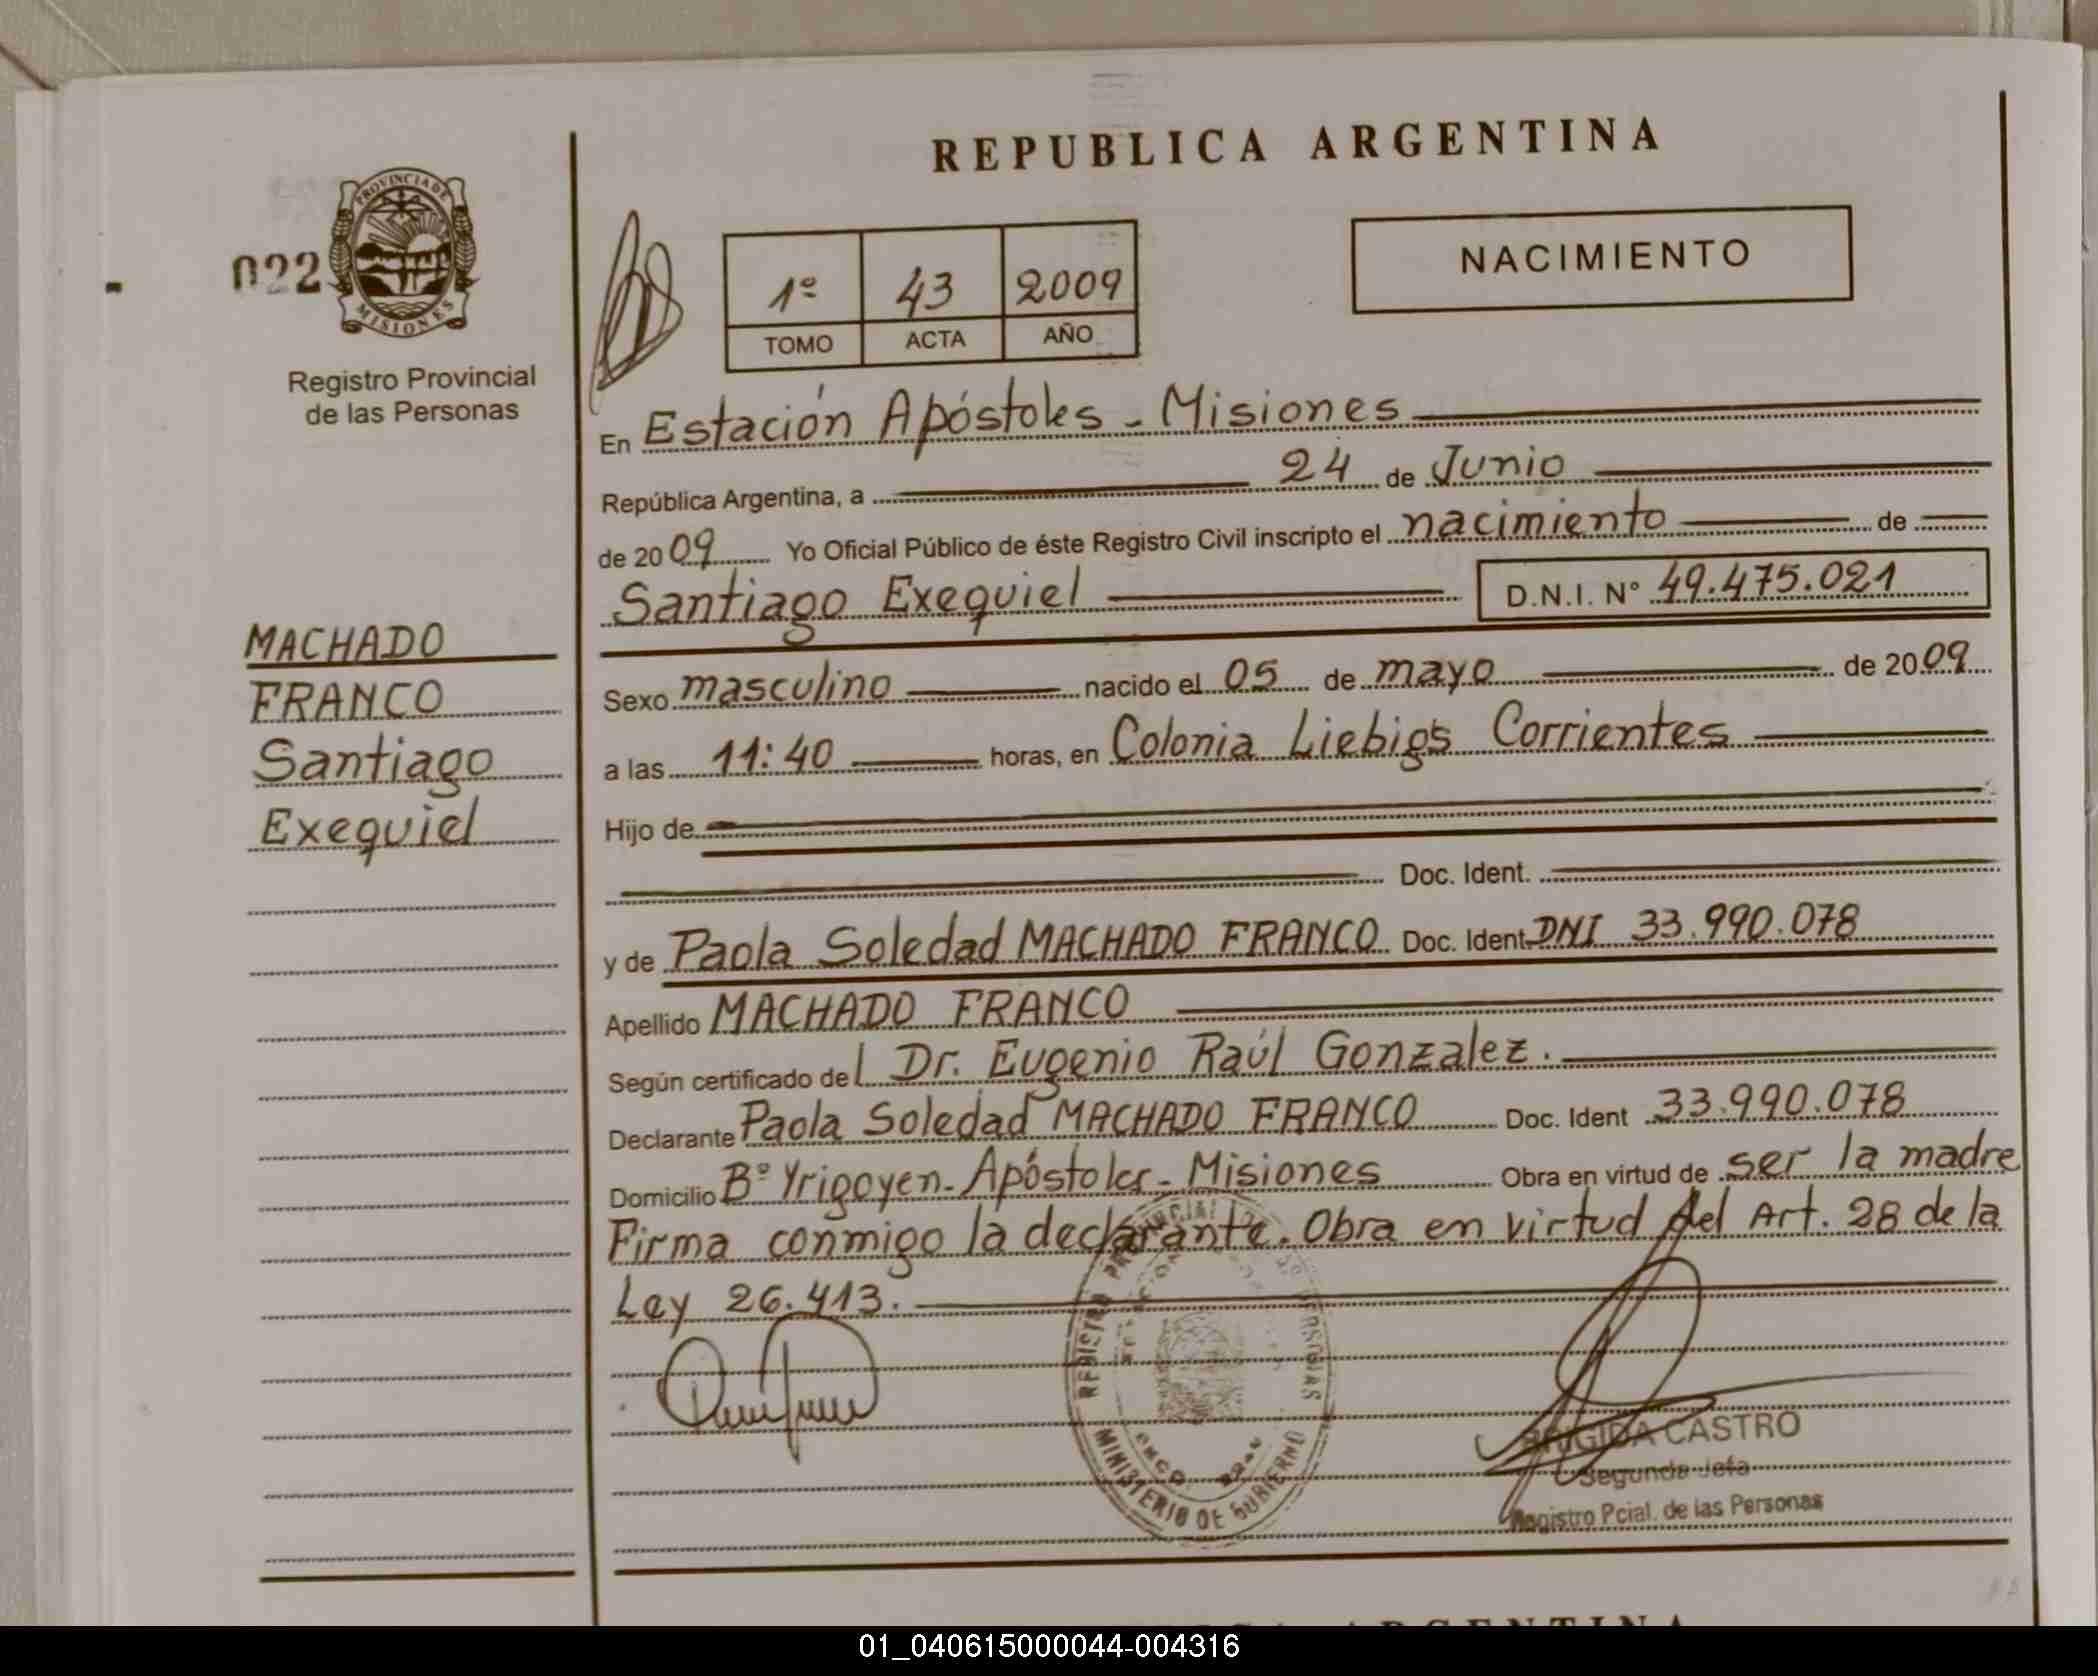 REPUBLICA ARGENTINA
PROVINCIA DE
MISIONES
022
Registro Provincial
de las Personas
1º 43 2009
TOMO ACTA AÑO
NACIMIENTO
En Estación Apóstoles - Misiones
República Argentina, a 24 de Junio
de 2009 Yo Oficial Público de éste Registro Civil inscripto el nacimiento de
Santiago Exequiel D.N.I. Nº 49.475.021
MACHADO
FRANCO
Santiago
Exequiel
Sexo masculino nacido el 05 de mayo de 2009
a las 11:40 horas, en Colonia Liebigs Corrientes
Hijo de
Doc. Ident.
y de Paola Soledad MACHADO FRANCO Doc. Ident DNI 33.990.078
Apellido MACHADO FRANCO
Según certificado del Dr. Eugenio Raúl Gonzalez.
Declarante Paola Soledad MACHADO FRANCO Doc. Ident 33.990.078
Domicilio Bº Yrigoyen - Apóstoles - Misiones Obra en virtud de ser la madre
Firma conmigo la declarante. Obra en virtud del Art. 28 de la
Ley 26.413.
REGISTRO PROVINCIAL DE LAS PERSONAS
MINISTERIO DE GOBIERNO
BRIGIDA CASTRO
Segunda Jefa
Registro Pcial. de las Personas
ARGENTINA
01_040615000044-004316